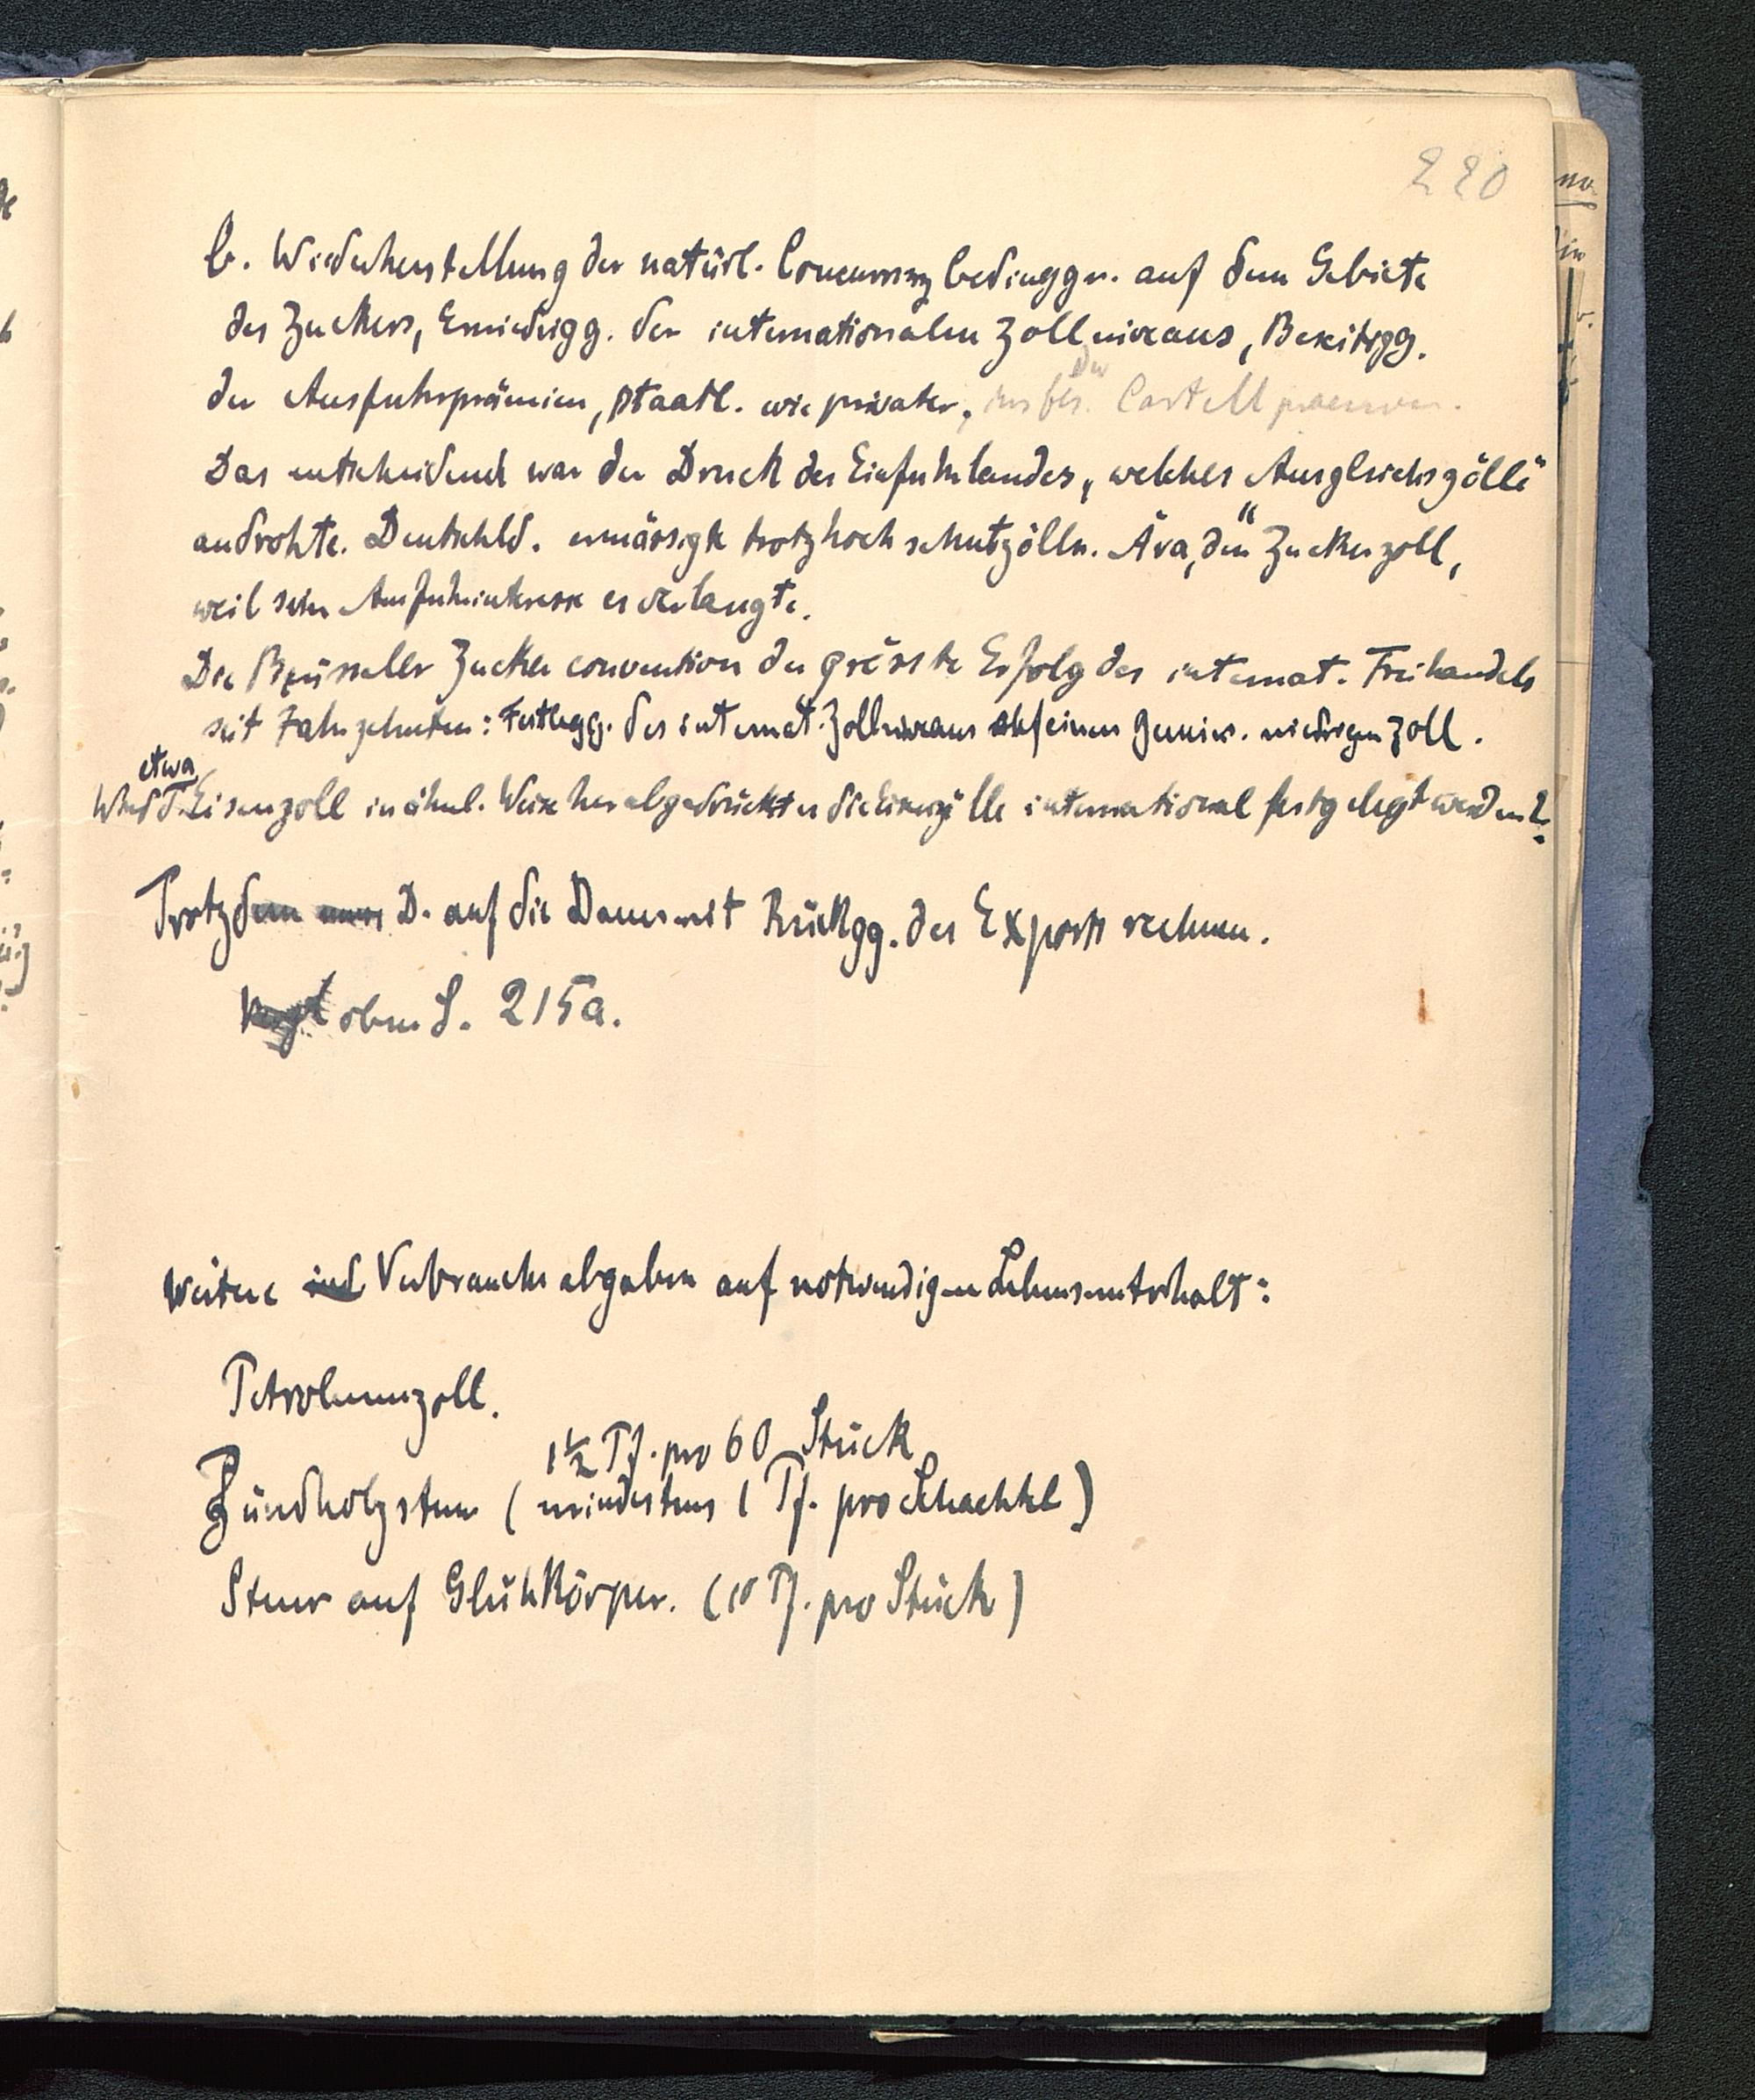 220
b. Wiederherstellung der natürl. Concurrenzbedinggn. auf dem Gebiete
des Zuckers, Erniedrigg. des internationalen Zollniveaus, Beseitigg.
der Ausfuhrprämien, staatl. wie privater, insbes. der Cartellpraemien.
Das entscheidend war der Druck des Einfuhrlandes, welches „Ausgleichszölle“
androhte. Deutschld. ermässigte trotz hochschutzölln. Ära, den Zuckerzoll,
weil sein Ausfuhrinteresse es verlangte.
Die Brüsseler Zuckerconvention der grösste Erfolg des internat. Freihandels
seit Jahrzehnten: Festlegg. des internat. Zollniveaus auf einen niedrigen Zoll.
etwa
Eisenzoll in ähnl. Weise herabgedrückt international festgelegt werden?
Trotzdem muss D. auf die Dauer mit Rückgg. des Exports rechnen.
Vergl oben S. 215a.
Weitere ind Verbrauchsabgaben auf notwendigen Lebensunterhalt:
Petroleumzoll.
1½ Pf. pro 60 Stück
Zündholzsteuer (mindestens 1 Pf. pro Schachtel)
Steuer auf Glühkörper. (10 Pf. pro Stück)